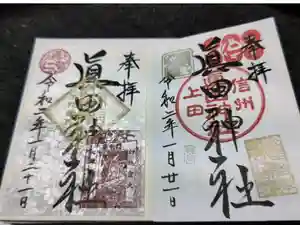 奉拝
信州
眞田神社
上田
令和二年一月廿一日
奉拝
眞田神社
令和二年一月二十一日